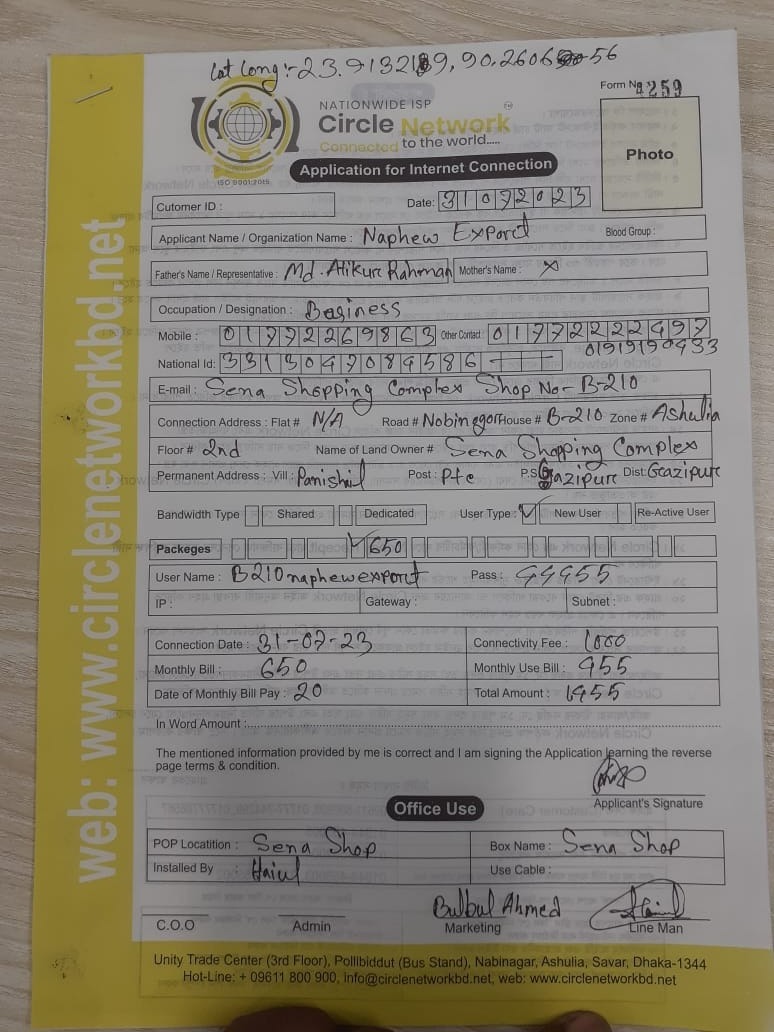 Lat Long:- 23.9132189, 90.260656
Form No 4259
NATIONWIDE ISP
Circle Network
Connected to the world.....
ISO 9001:2015
Application for Internet Connection
Photo
Cutomer ID :
Date: 31072023
Applicant Name / Organization Name : Naphew Export Blood Group :
Father's Name / Representative : Md. Atikur Rahman Mother's Name : X
Occupation / Designation : Basiness
Mobile : 01772269863 Other Contact : 01772222497
01919190433
National Id: 3313047084586
E-mail : Sena Shopping Complex Shop No- B-210
Connection Address : Flat # N/A Road # Nobinegor House # B-210 Zone # Ashulia
Floor # 2nd Name of Land Owner # Sena Shopping Complex
Permanent Address : Vill : Panishil Post : Pte P.S Gazipur Dist: Gazipur
Bandwidth Type Shared Dedicated User Type : ✓ New User Re-Active User
Packeges ✓ 650
User Name : B210naphewexport Pass : 44455
IP : Gateway : Subnet :
Connection Date : 31-07-23 Connectivity Fee : 1000
Monthly Bill : 650 Monthly Use Bill : 455
Date of Monthly Bill Pay : 20 Total Amount : 1455
In Word Amount :
The mentioned information provided by me is correct and I am signing the Application learning the reverse
page terms & condition.
Applicant's Signature
Office Use
POP Locatition : Sena Shop Box Name : Sena Shop
Installed By : Use Cable :
Bulbul Ahmed
C.O.O Admin Marketing Line Man
Unity Trade Center (3rd Floor), Pollibiddut (Bus Stand), Nabinagar, Ashulia, Savar, Dhaka-1344
Hot-Line: + 09611 800 900, info@circlenetworkbd.net, web: www.circlenetworkbd.net
web: www.circlenetworkbd.net